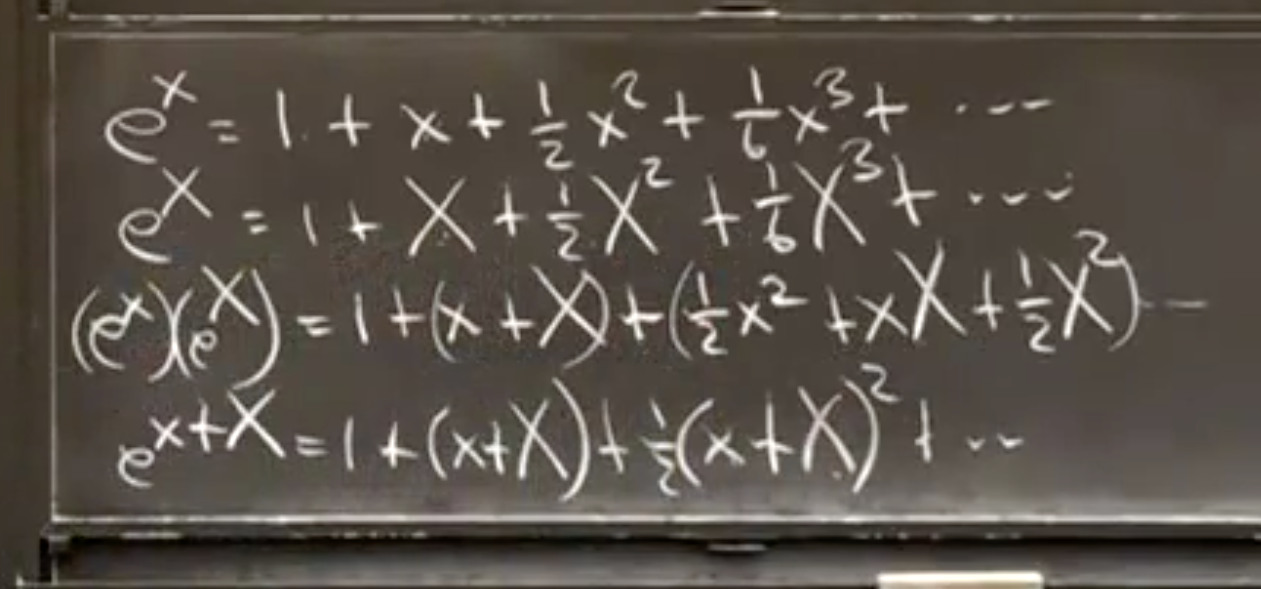 e^x = 1 + x + 1/2 x^2 + 1/6 x^3 + ...
e^X = 1 + X + 1/2 X^2 + 1/6 X^3 + ...
(e^x)(e^X) = 1 + (x + X) + (1/2 x^2 + xX + 1/2 X^2) ...
e^(x+X) = 1 + (x+X) + 1/2 (x+X)^2 + ...